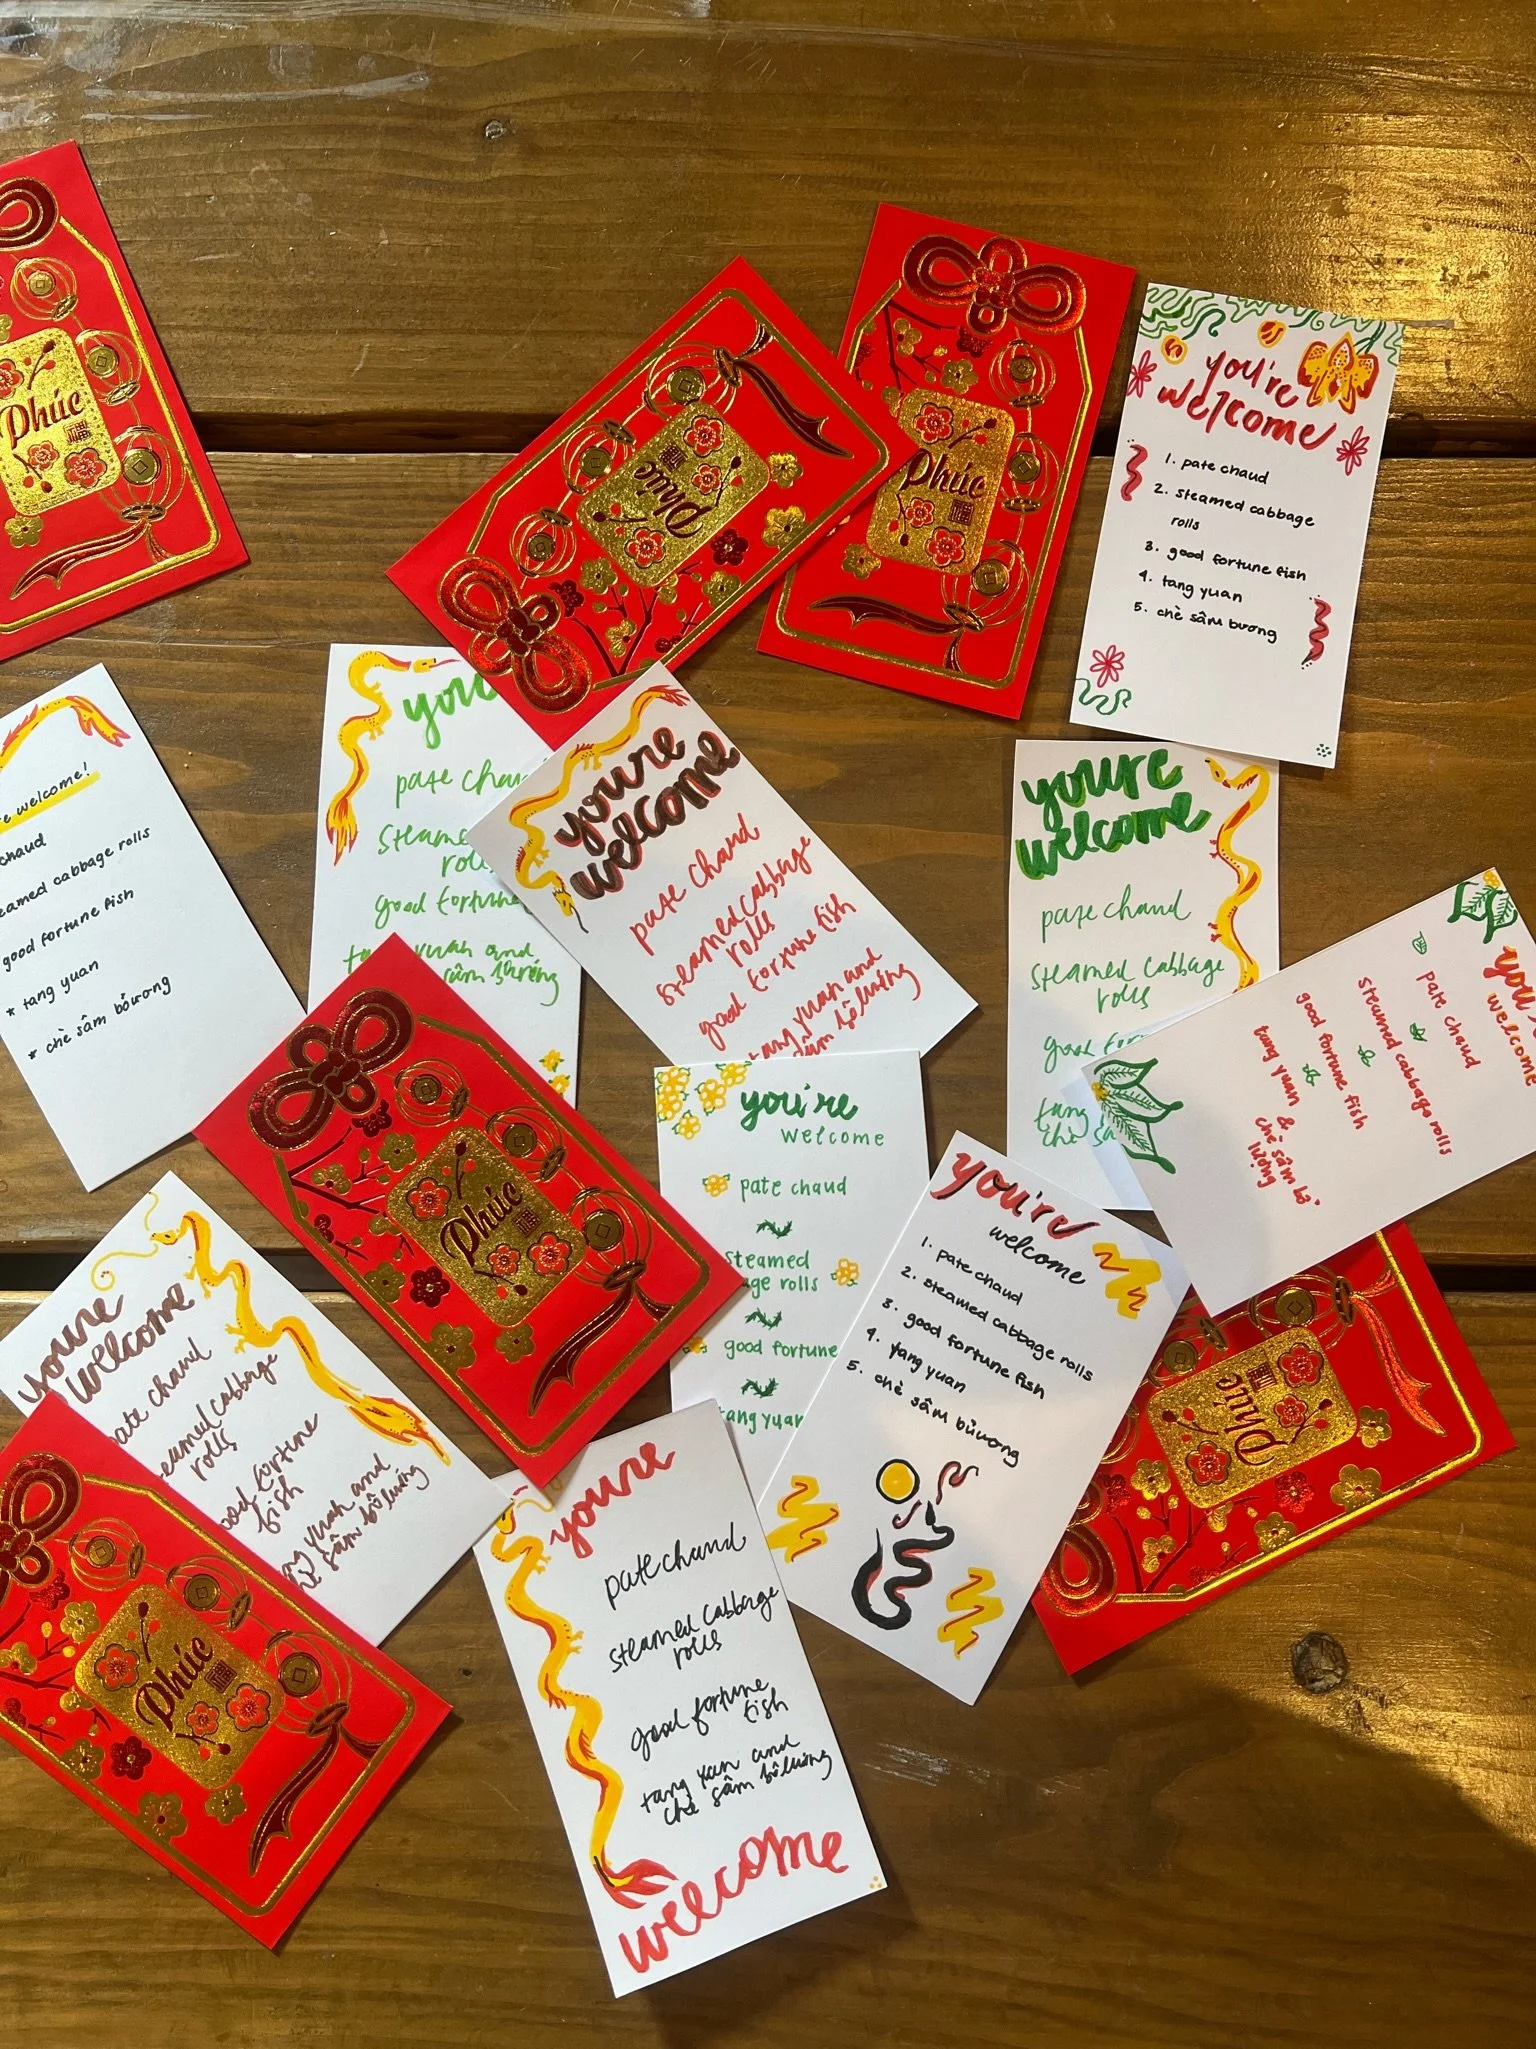 Phúc
福
Phúc
福
Phúc
福
you're
welcome
1. pate chaud
2. steamed cabbage
rolls
3. good fortune fish
4. tang yuan
5. chè sâm bương
welcome!
chaud
cabbage rolls
good fortune fish
* tang yuan
* chè sâm bổương
you
pate
rolls
good fortune
yuan and
sâm
you're
welcome
pate chaud
steamed cabbage
rolls
good fortune fish
tang yuan and
youre
welcome
pate chand
steamed cabbage
rolls
good
tang
chè
you
welcome
pate chaud
steamed cabbage rolls
good fortune fish
tang yuan &
chè sâm bổ
lượng
Phúc
福
you're
welcome
pate chaud
steamed
rolls
good fortune
tang yuan
you're
welcome
1. pate chaud
2. steamed cabbage rolls
3. good fortune fish
4. tang yuan
5. chè sâm bửương
youre
welcome
pate chand
cabbage
rolls
good fortune
fish
yuan and
sâm bổ lượng
Phúc
福
Phúc
福
youre
pate chand
steamed cabbage
rolls
good fortune
fish
tang yuan and
chè sâm bổ lượng
welcome